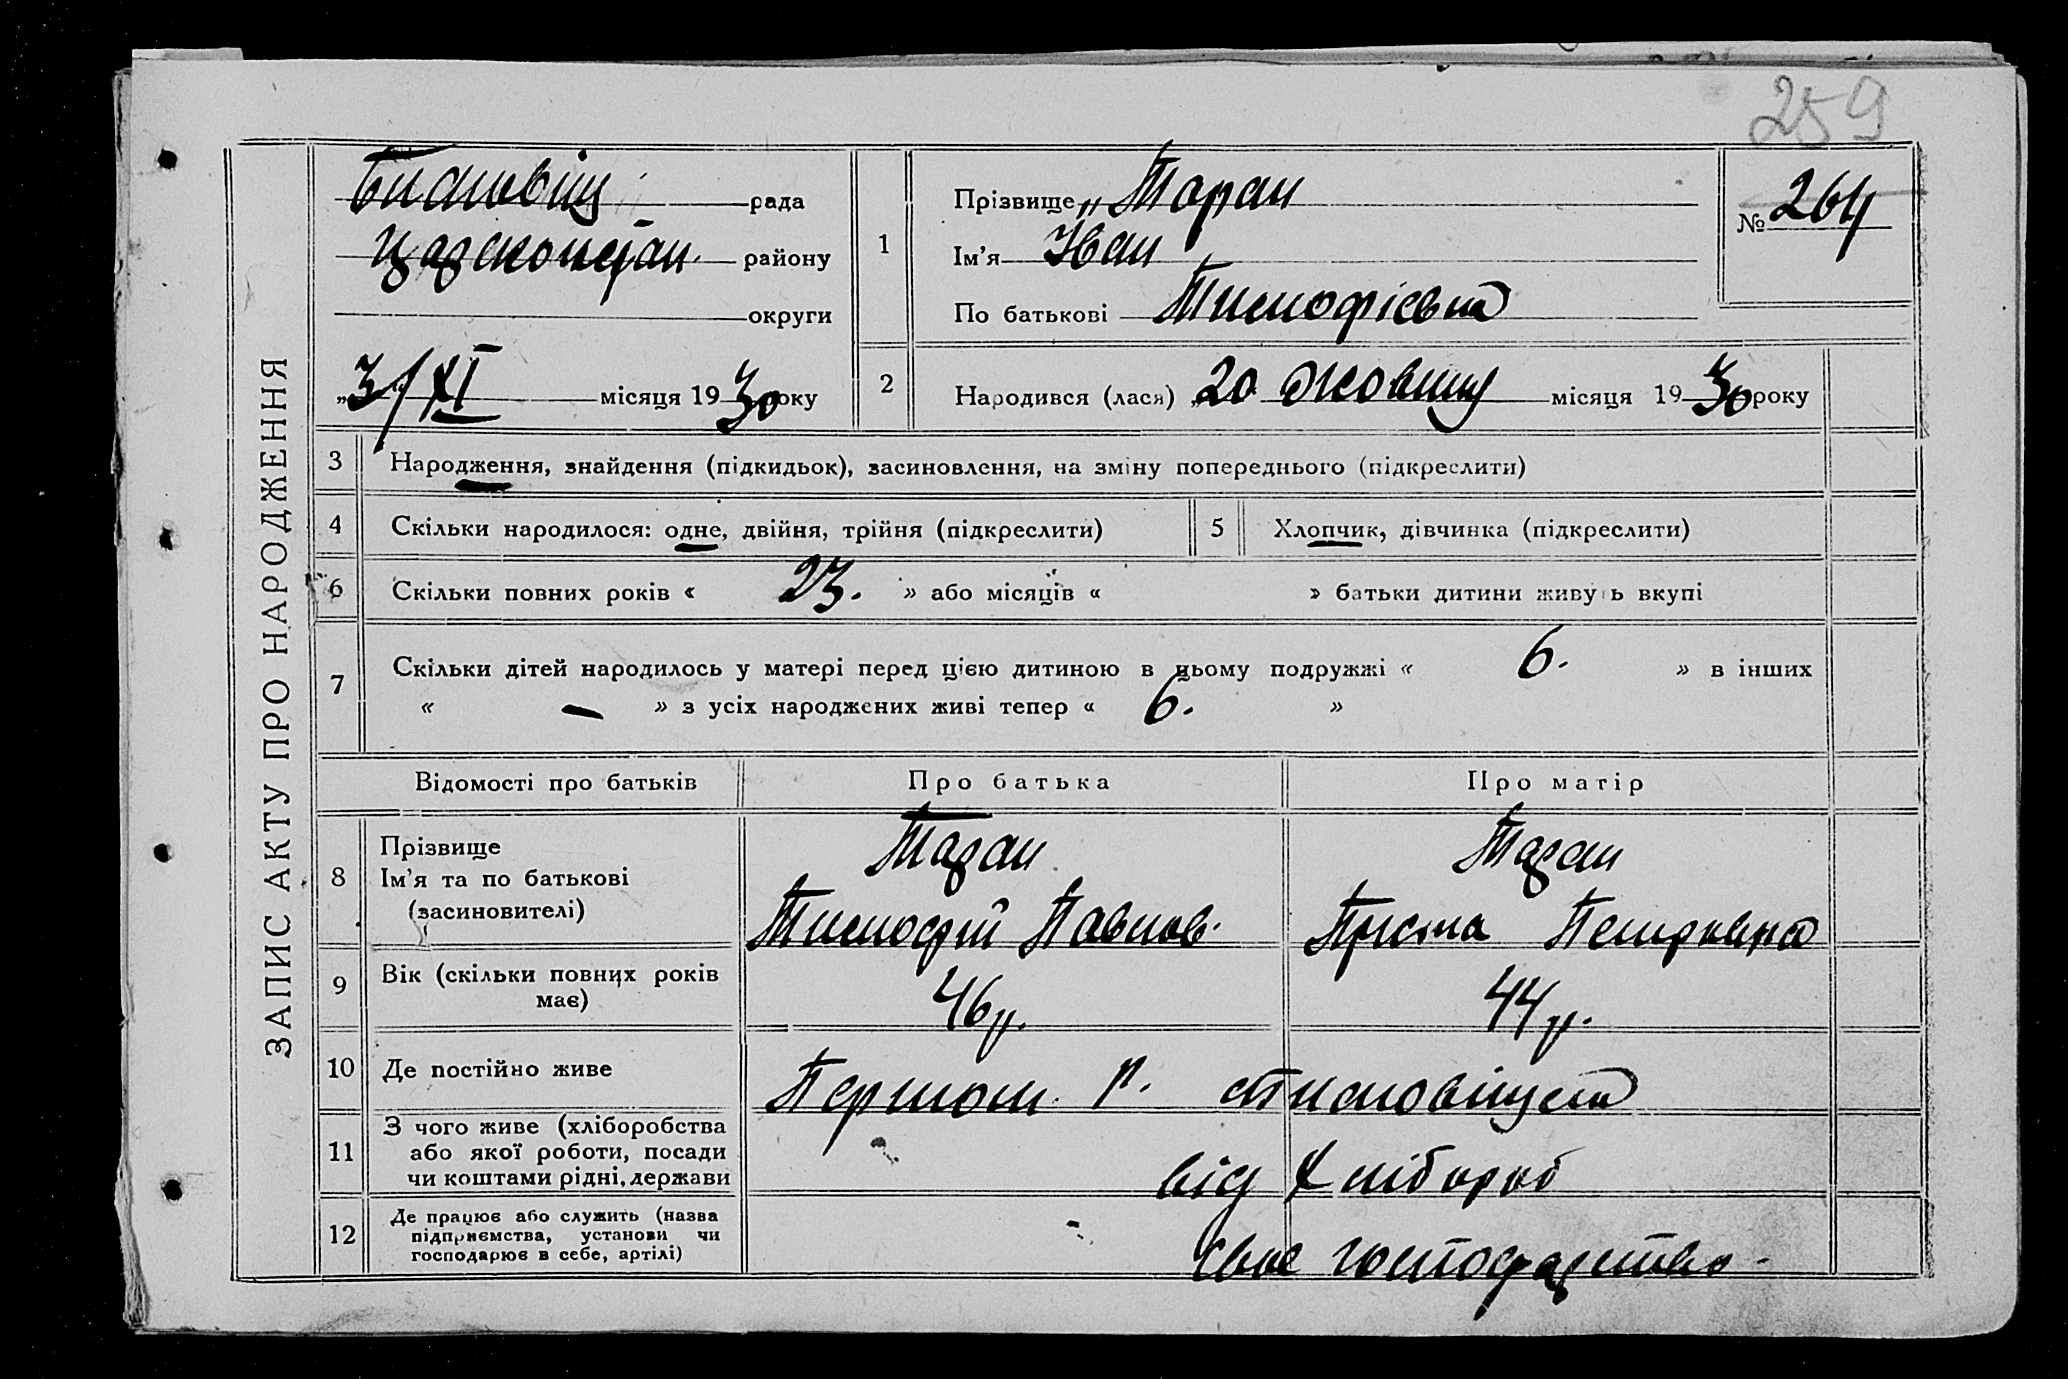 259
ЗАПИС АКТУ ПРО НАРОДЖЕННЯ
рада
району
округи
„3/XI місяця 1930 року
1
Прізвище „Таран
Ім'я Іван
По батькові Тимофієвич
№ 264
2
Народився (лася) „20 жовтня місяця 1930 року
3 Народження, знайдення (підкидьок), засиновлення, на зміну попереднього (підкреслити)
4 Скільки народилося: одне, двійня, трійня (підкреслити)
5 Хлопчик, дівчинка (підкреслити)
6 Скільки повних років « 23. » або місяців « » батьки дитини живуть вкупі
7 Скільки дітей народилось у матері перед цією дитиною в цьому подружжі « 6. » в інших
« — » з усіх народжених живі тепер « 6. »
Відомості про батьків Про батька Про матір
8 Прізвище Ім'я та по батькові (засиновителі)
Таран Таран
Тимофій Павлов. Петровна
9 Вік (скільки повних років має) 46 р. 44 р.
10 Де постійно живе
11 З чого живе (хліборобства або якої роботи, посади чи коштами рідні, держави
від хлібороб
12 Де працює або служить (назва підприємства, установи чи господарює в себе, артілі)
своє господарство.